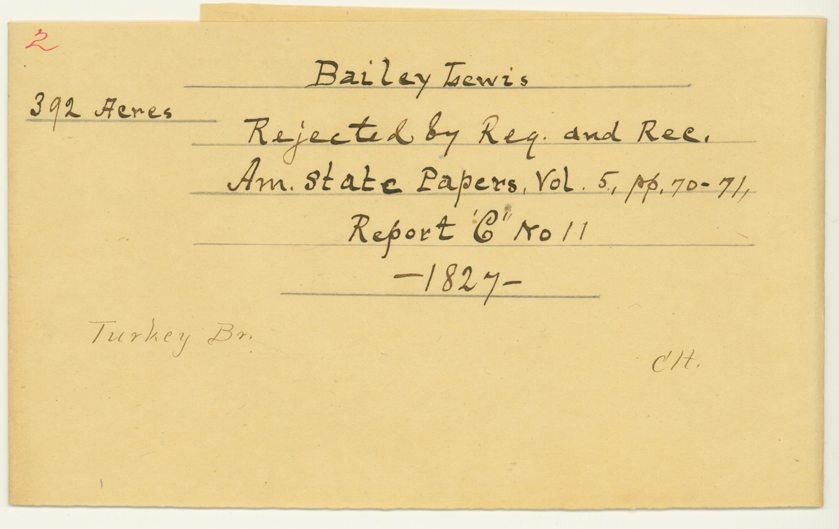 2
Bailey Lewis
392 Acres
Rejected by Reg. and Rec.
Am. State Papers, Vol. 5, pp. 70-71,
Report "C" No 11
-1827-
Turkey Br.